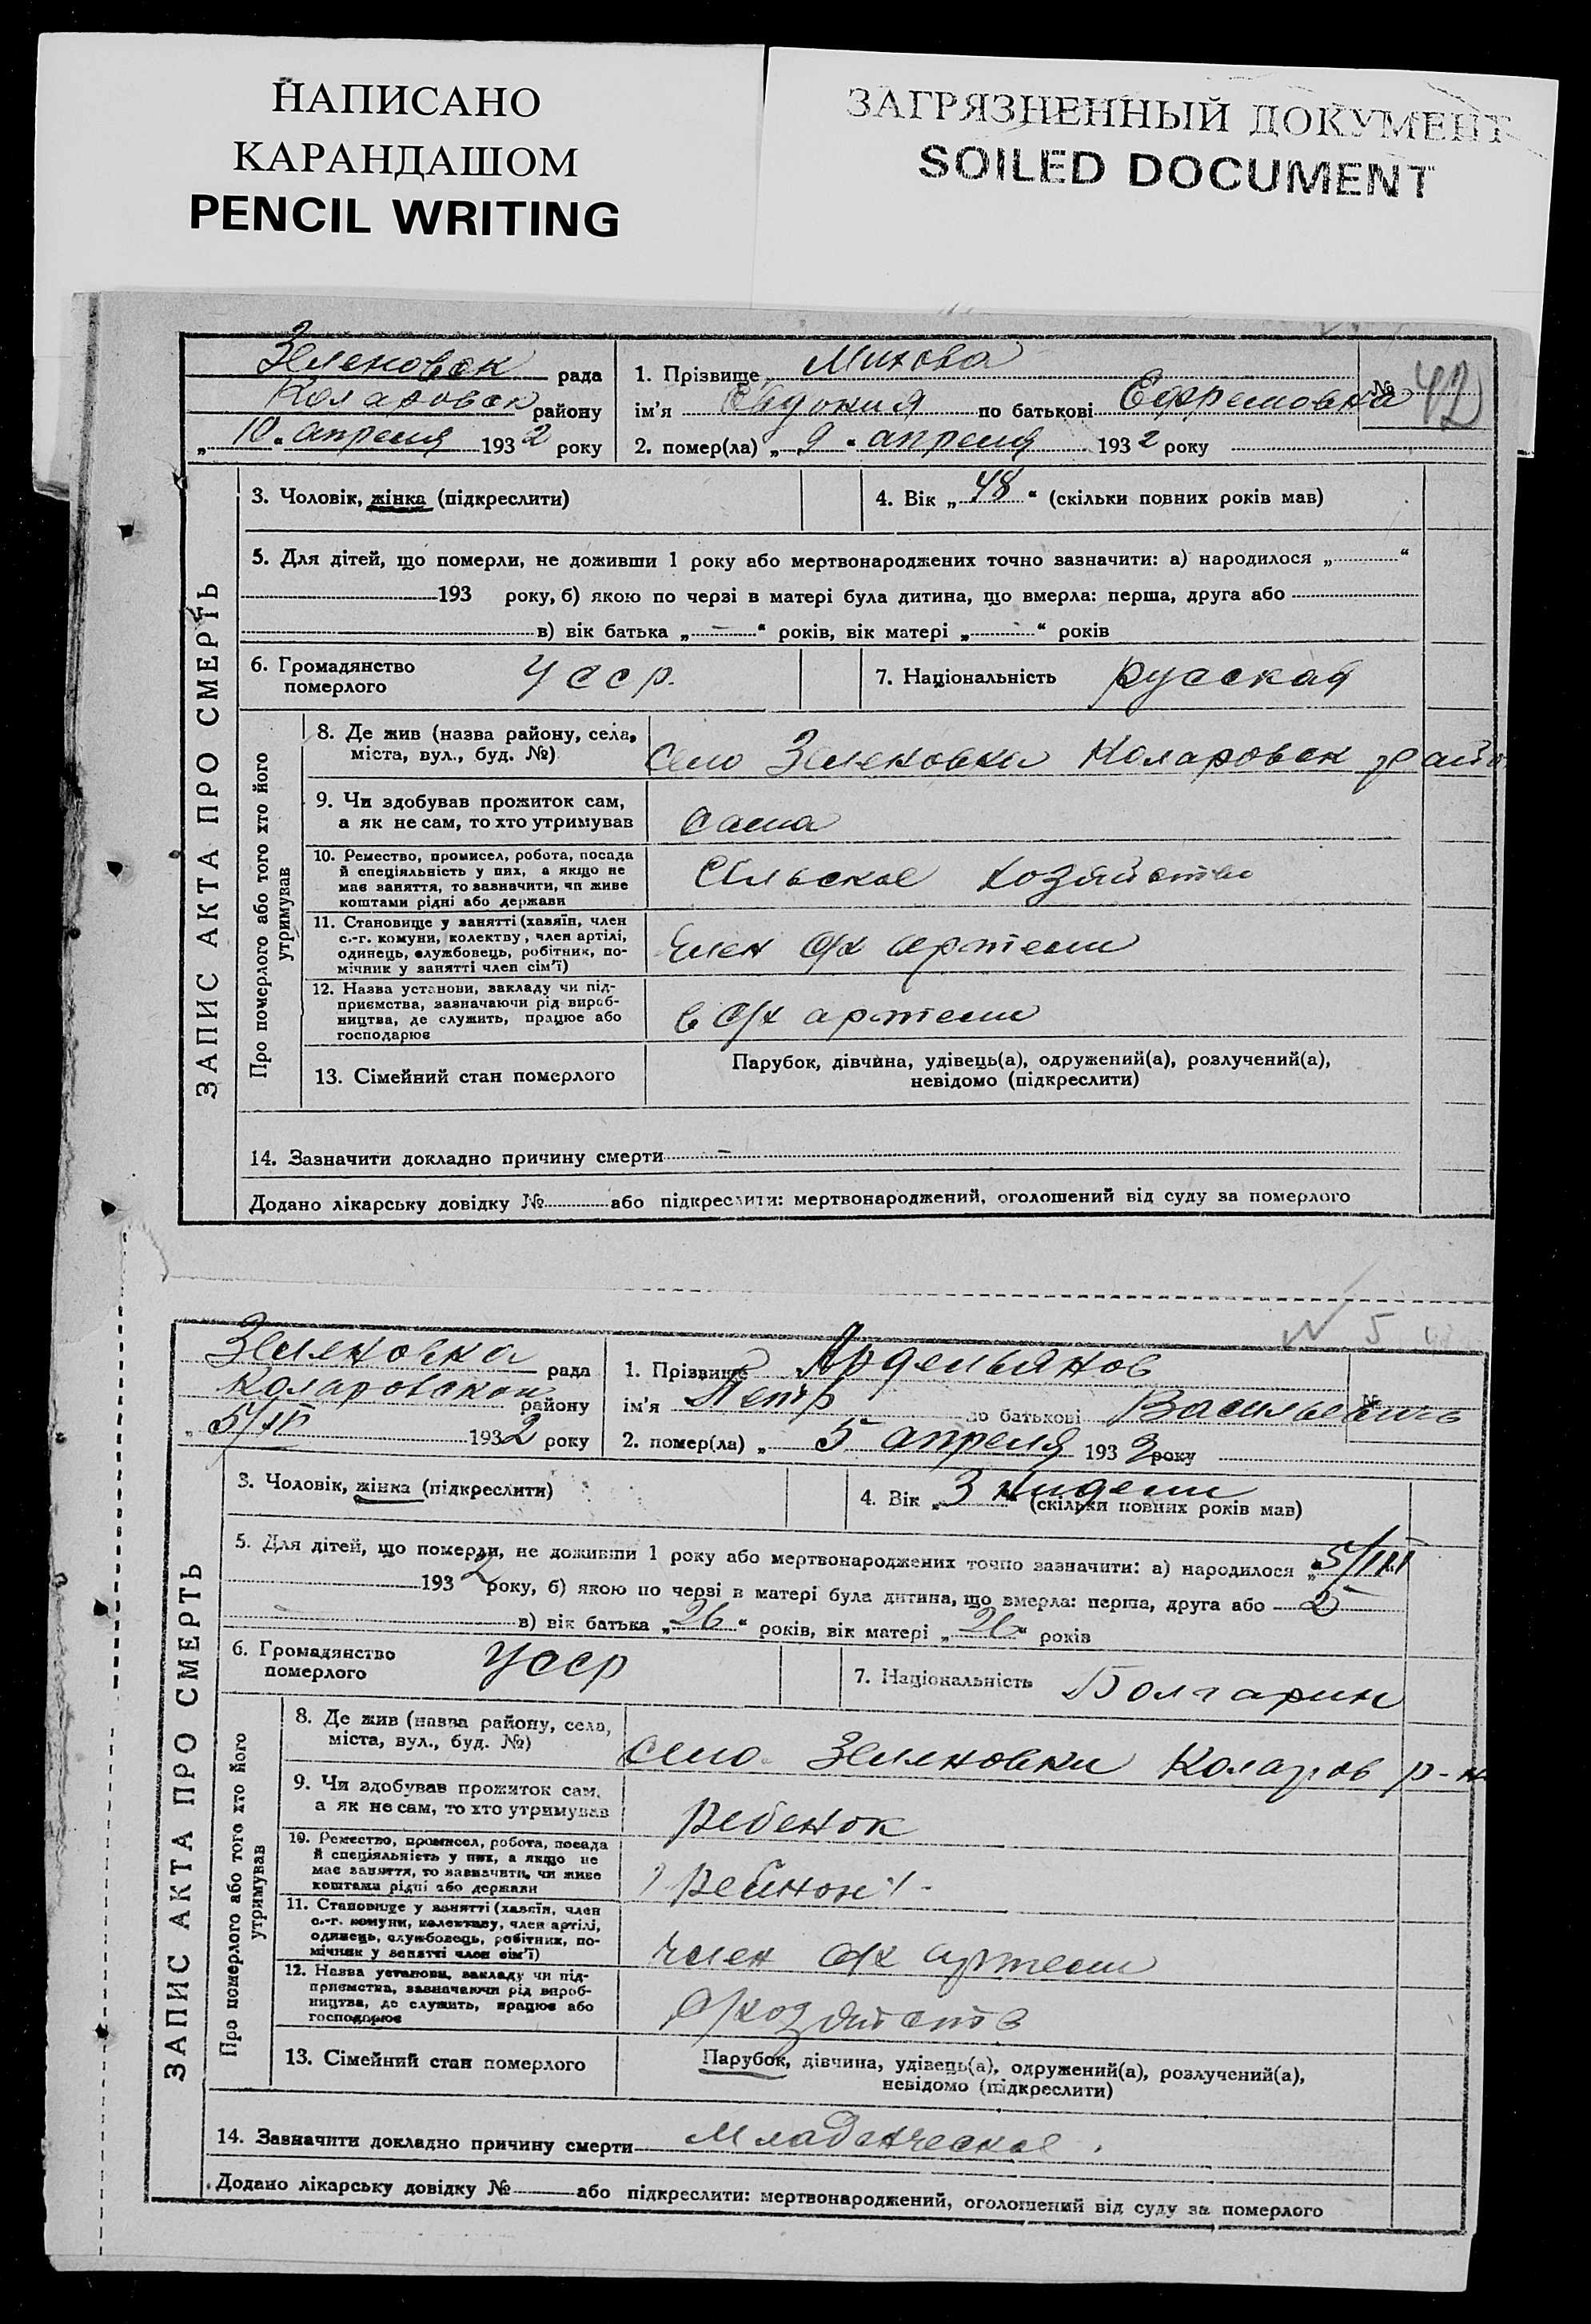 НАПИСАНО
КАРАНДАШОМ
PENCIL WRITING
ЗАГРЯЗНЕННЫЙ ДОКУМЕНТ
SOILED DOCUMENT
Зеленовск рада
Коларовск району
„ 10 " апреля 1932 року
1. Прізвище Михова
№ 42
ім'я Евдокия по батькові Ефремовна
2. помер(ла) „ 9 " апреля 1932 року
ЗАПИС АКТА ПРО СМЕРТЬ
3. Чоловік, жінка (підкреслити)
4. Вік „ 48 " (скільки повних років мав)
5. Для дітей, що померли, не доживши 1 року або мертвонароджених точно зазначити: а) народилося „ "
193 року, б) якою по черзі в матері була дитина, що вмерла: перша, друга або
в) вік батька „ — " років, вік матері „ — " років
6. Громадянство
померлого
УССР.
7. Національність русская
Про померлого або того хто його
утримував
8. Де жив (назва району, села,
міста, вул., буд. №)
село Зеленовка Коларовск район
9. Чи здобував прожиток сам,
а як не сам, то хто утримував
сама
10. Ремество, промисел, робота, посада
й спеціяльність у них, а якщо не
має заняття, то зазначити, чи живе
коштами рідні або держави
Сельское хозяйство
11. Становище у занятті (хазяїн, член
с.-г. комуни, колектву, член артілі,
одинець, службовець, робітник, по-
мічник у занятті член сім'ї)
член с/х артели
12. Назва установи, закладу чи під-
приємства, зазначаючи рід вироб-
ництва, де служить, працює або
господарює
в с/х артели
13. Сімейний стан померлого
Парубок, дівчина, удівець(а), одружений(а), розлучений(а),
невідомо (підкреслити)
14. Зазначити докладно причину смерти —
Додано лікарську довідку № або підкреслити: мертвонароджений, оголошений від суду за померлого
№ 5
Зеленовка рада
Коларовской району
„ 5/IV 1932 року
1. Прізвище Ардельянов
№
ім'я Петр по батькові Васильевичь
2. помер(ла) „ 5 апреля 1932 року
ЗАПИС АКТА ПРО СМЕРТЬ
3. Чоловік, жінка (підкреслити)
4. Вік „ 3 нидели " (скільки повних років мав)
5. Для дітей, що померли, не доживши 1 року або мертвонароджених точно зазначити: а) народилося „ 5/III
1932 року, б) якою по черзі в матері була дитина, що вмерла: перша, друга або 2
в) вік батька „ 26 " років, вік матері „ 26 " років
6. Громадянство
померлого
УССР
7. Національність Болгарин
Про померлого або того хто його
утримував
8. Де жив (назва району, села,
міста, вул., буд. №)
село Зеленовки Коларов р-н
9. Чи здобував прожиток сам,
а як не сам, то хто утримував
ребенок
10. Ремество, промисел, робота, посада
й спеціяльність у них, а якщо не
має заняття, то зазначити, чи живе
коштами рідні або держави
11. Становище у занятті (хазяїн, член
с.-г. комуни, колективу, член артілі,
одинець, службовець, робітник, по-
мічник у занятті член сім'ї)
член с/х артели
12. Назва установи, закладу чи під-
приємства, зазначаючи рід вироб-
ництва, де служить, працює або
господарює
13. Сімейний стан померлого
Парубок, дівчина, удівець(а), одружений(а), розлучений(а),
невідомо (підкреслити)
14. Зазначити докладно причину смерти Младенческае.
Додано лікарську довідку № або підкреслити: мертвонароджений, оголошений від суду за померлого